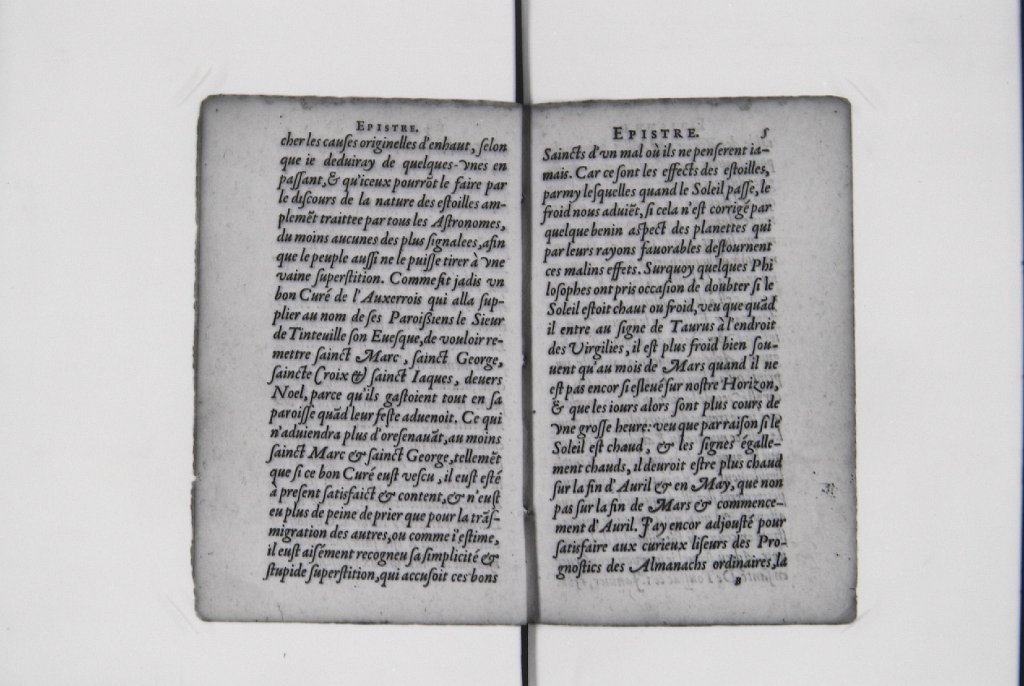 EPISTRE.
cher les causes originelles d'enhaut, selon
que ie deduiray de quelques-vnes en
passant, & qu'iceux pourrõt le faire par
le discours de la nature des estoilles am-
plemẽt traittee par tous les Astronomes,
du moins aucunes des plus signalees, afin
que le peuple aussi ne le puisse tirer à vne
vaine superstition. Comme fit jadis vn
bon Curé de l'Auxerrois qui alla sup-
plier au nom de ses Paroißiens le Sieur
de Tinteuille son Euesque, de vouloir re-
mettre sainct Marc, sainct George,
saincte Croix & sainct Iaques, deuers
Noel, parce qu'ils gastoient tout en sa
paroisse quãd leur feste aduenoit. Ce qui
n'aduiendra plus d'oresenauãt, au moins
sainct Marc & sainct George, tellemẽt
que si ce bon Curé eust vescu, il eust esté
à present satisfaict & content, & n'eust
eu plus de peine de prier que pour la trãs-
migration des autres, ou comme i'estime,
il eust aisément recogneu sa simplicité &
stupide superstition, qui accusoit ces bons
EPISTRE. 5
Saincts d'vn mal où ils ne penserent ia-
mais. Car ce sont les effects des estoilles,
parmy lesquelles quand le Soleil passe, le
froid nous aduiẽt, si cela n'est corrigé par
quelque benin aspect des planettes qui
par leurs rayons fauorables destournent
ces malins effets. Surquoy quelques Phi
losophes ont pris occasion de doubter si le
Soleil estoit chaut ou froid, veu que quãd
il entre au signe de Taurus à l'endroit
des Virgilies, il est plus froid bien sou-
uent qu'au mois de Mars quand il ne
est pas encor si esleué sur nostre Horizon,
& que les iours alors sont plus cours de
vne grosse heure: veu que par raison si le
Soleil est chaud, & les signes égalle-
ment chauds, il deuroit estre plus chaud
sur la fin d'Auril & en May, que non
pas sur la fin de Mars & commence-
ment d'Auril. J'ay encor adjousté pour
satisfaire aux curieux liseurs des Pro-
gnostics des Almanachs ordinaires, la
B